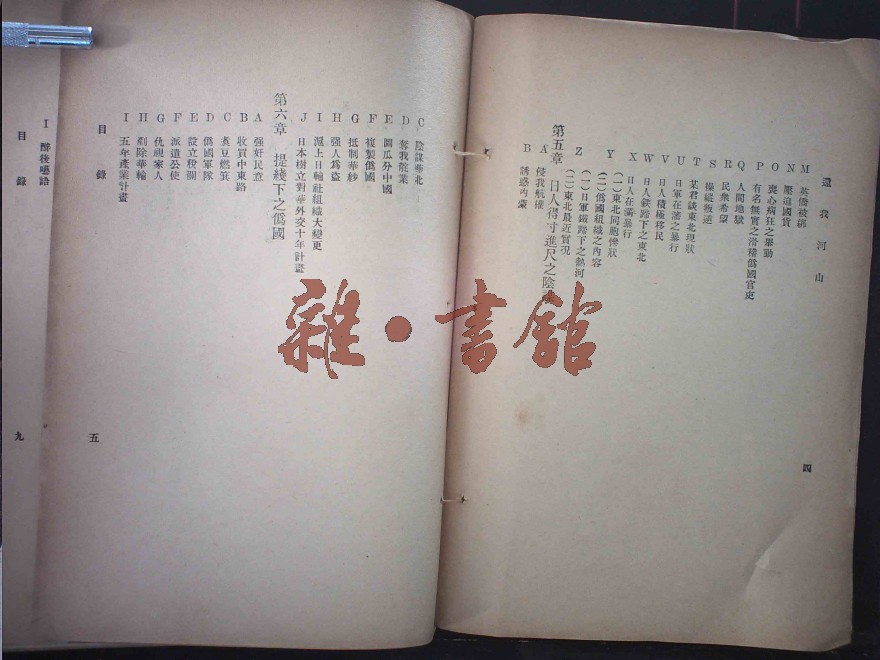 還我河山
M 英僑被綁
N 壓迫國貨
O 喪心病狂之舉動
P 有名無實之滑稽僞國官吏
Q 人間地獄
R 民衆希望
S 操縱叛逆
T 某君談東北現狀
U 日軍在瀋之暴行
V 日人積極移民
W 日人鉄蹄下之東北
X 日人在滿暴行
Y (一)東北同胞慘狀
(二)僞國組織之內容
Z (一)日軍鐵蹄下之熱河
(二)東北最近實況
第五章 日人得寸進尺之陰謀
A 侵我航權
B 誘惑內蒙
四
C 陰謀華北
D 奪我舵業
E 圖瓜分中國
F 複製僞國
G 抵制華紗
H 强人爲盜
I 滬上日輪社組織大變更
J 日本樹立對華外交十年計畫
第六章 提綫下之僞國
A 强奸民意
B 收買中東路
C 煑豆燃箕
D 僞國軍隊
E 設立稅關
F 派遣公使
G 仇視家人
H 剷除華輪
I 五年產業計畫
目錄
五
I 醉後囈語
目錄
九
雜·書館